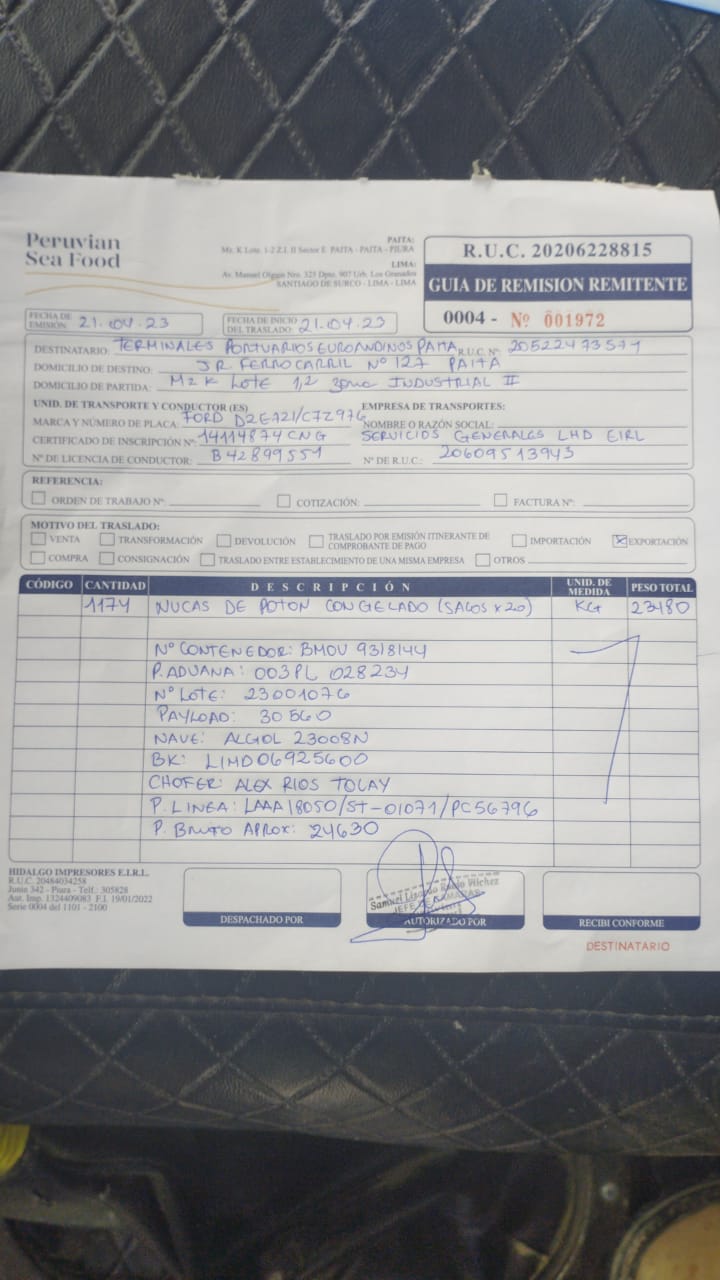 Peruvian
Sea Food
PAITA:
Mz. K Lote. 1-2 Z.I. II Sector E PAITA - PAITA - PIURA
LIMA:
Av. Manuel Olguin Nro. 325 Dpto. 907 Urb. Los Granados
SANTIAGO DE SURCO - LIMA - LIMA
R.U.C. 20206228815
GUIA DE REMISION REMITENTE
0004 - Nº 001972
FECHA DE EMISIÓN 21.04.23
FECHA DE INICIO DEL TRASLADO: 21.04.23
DESTINATARIO: TERMINALES PORTUARIOS EUROANDINOS PAITA R.U.C. Nº 20522473571
DOMICILIO DE DESTINO: JR FERROCARRIL Nº 127 PAITA
DOMICILIO DE PARTIDA: MZ K LOTE 1,2 zona INDUSTRIAL II
UNID. DE TRANSPORTE Y CONDUCTOR (ES) EMPRESA DE TRANSPORTES:
MARCA Y NÚMERO DE PLACA: FORD D2E721/C7Z976 NOMBRE O RAZÓN SOCIAL:
CERTIFICADO DE INSCRIPCIÓN Nº 14114874CNG SERVICIOS GENERALES LHD EIRL
Nº DE LICENCIA DE CONDUCTOR: B42899551 Nº DE R.U.C.: 20609513943
REFERENCIA:
ORDEN DE TRABAJO Nº COTIZACIÓN: FACTURA Nº:
MOTIVO DEL TRASLADO:
VENTA TRANSFORMACIÓN DEVOLUCIÓN TRASLADO POR EMISIÓN ITINERANTE DE COMPROBANTE DE PAGO IMPORTACIÓN EXPORTACIÓN
COMPRA CONSIGNACIÓN TRASLADO ENTRE ESTABLECIMIENTO DE UNA MISMA EMPRESA OTROS
CÓDIGO CANTIDAD DESCRIPCIÓN UNID. DE MEDIDA PESO TOTAL
1174 NUCAS DE POTON CONGELADO (SACOS x 20) KG 23480
Nº CONTENEDOR: BMOU 9318144
P. ADUANA: 003PL 028234
Nº LOTE: 23001076
PAYLOAD: 30560
NAVE: ALGOL 23008N
BK: LIMD06925600
CHOFER: ALEX RIOS TOCAY
P. LINEA: LAAA18050/ST-01071/PC56796
P. BRUTO APROX: 24630
HIDALGO IMPRESORES E.I.R.L.
R.U.C. 20484034258
Junin 342 - Piura - Telf.: 305828
Aut. Imp. 1324409083 F.I. 19/01/2022
Serie 0004 del 1101 - 2100
DESPACHADO POR
Samuel Vilchez
JEFE DE CAMARAS
AUTORIZADO POR
RECIBI CONFORME
DESTINATARIO